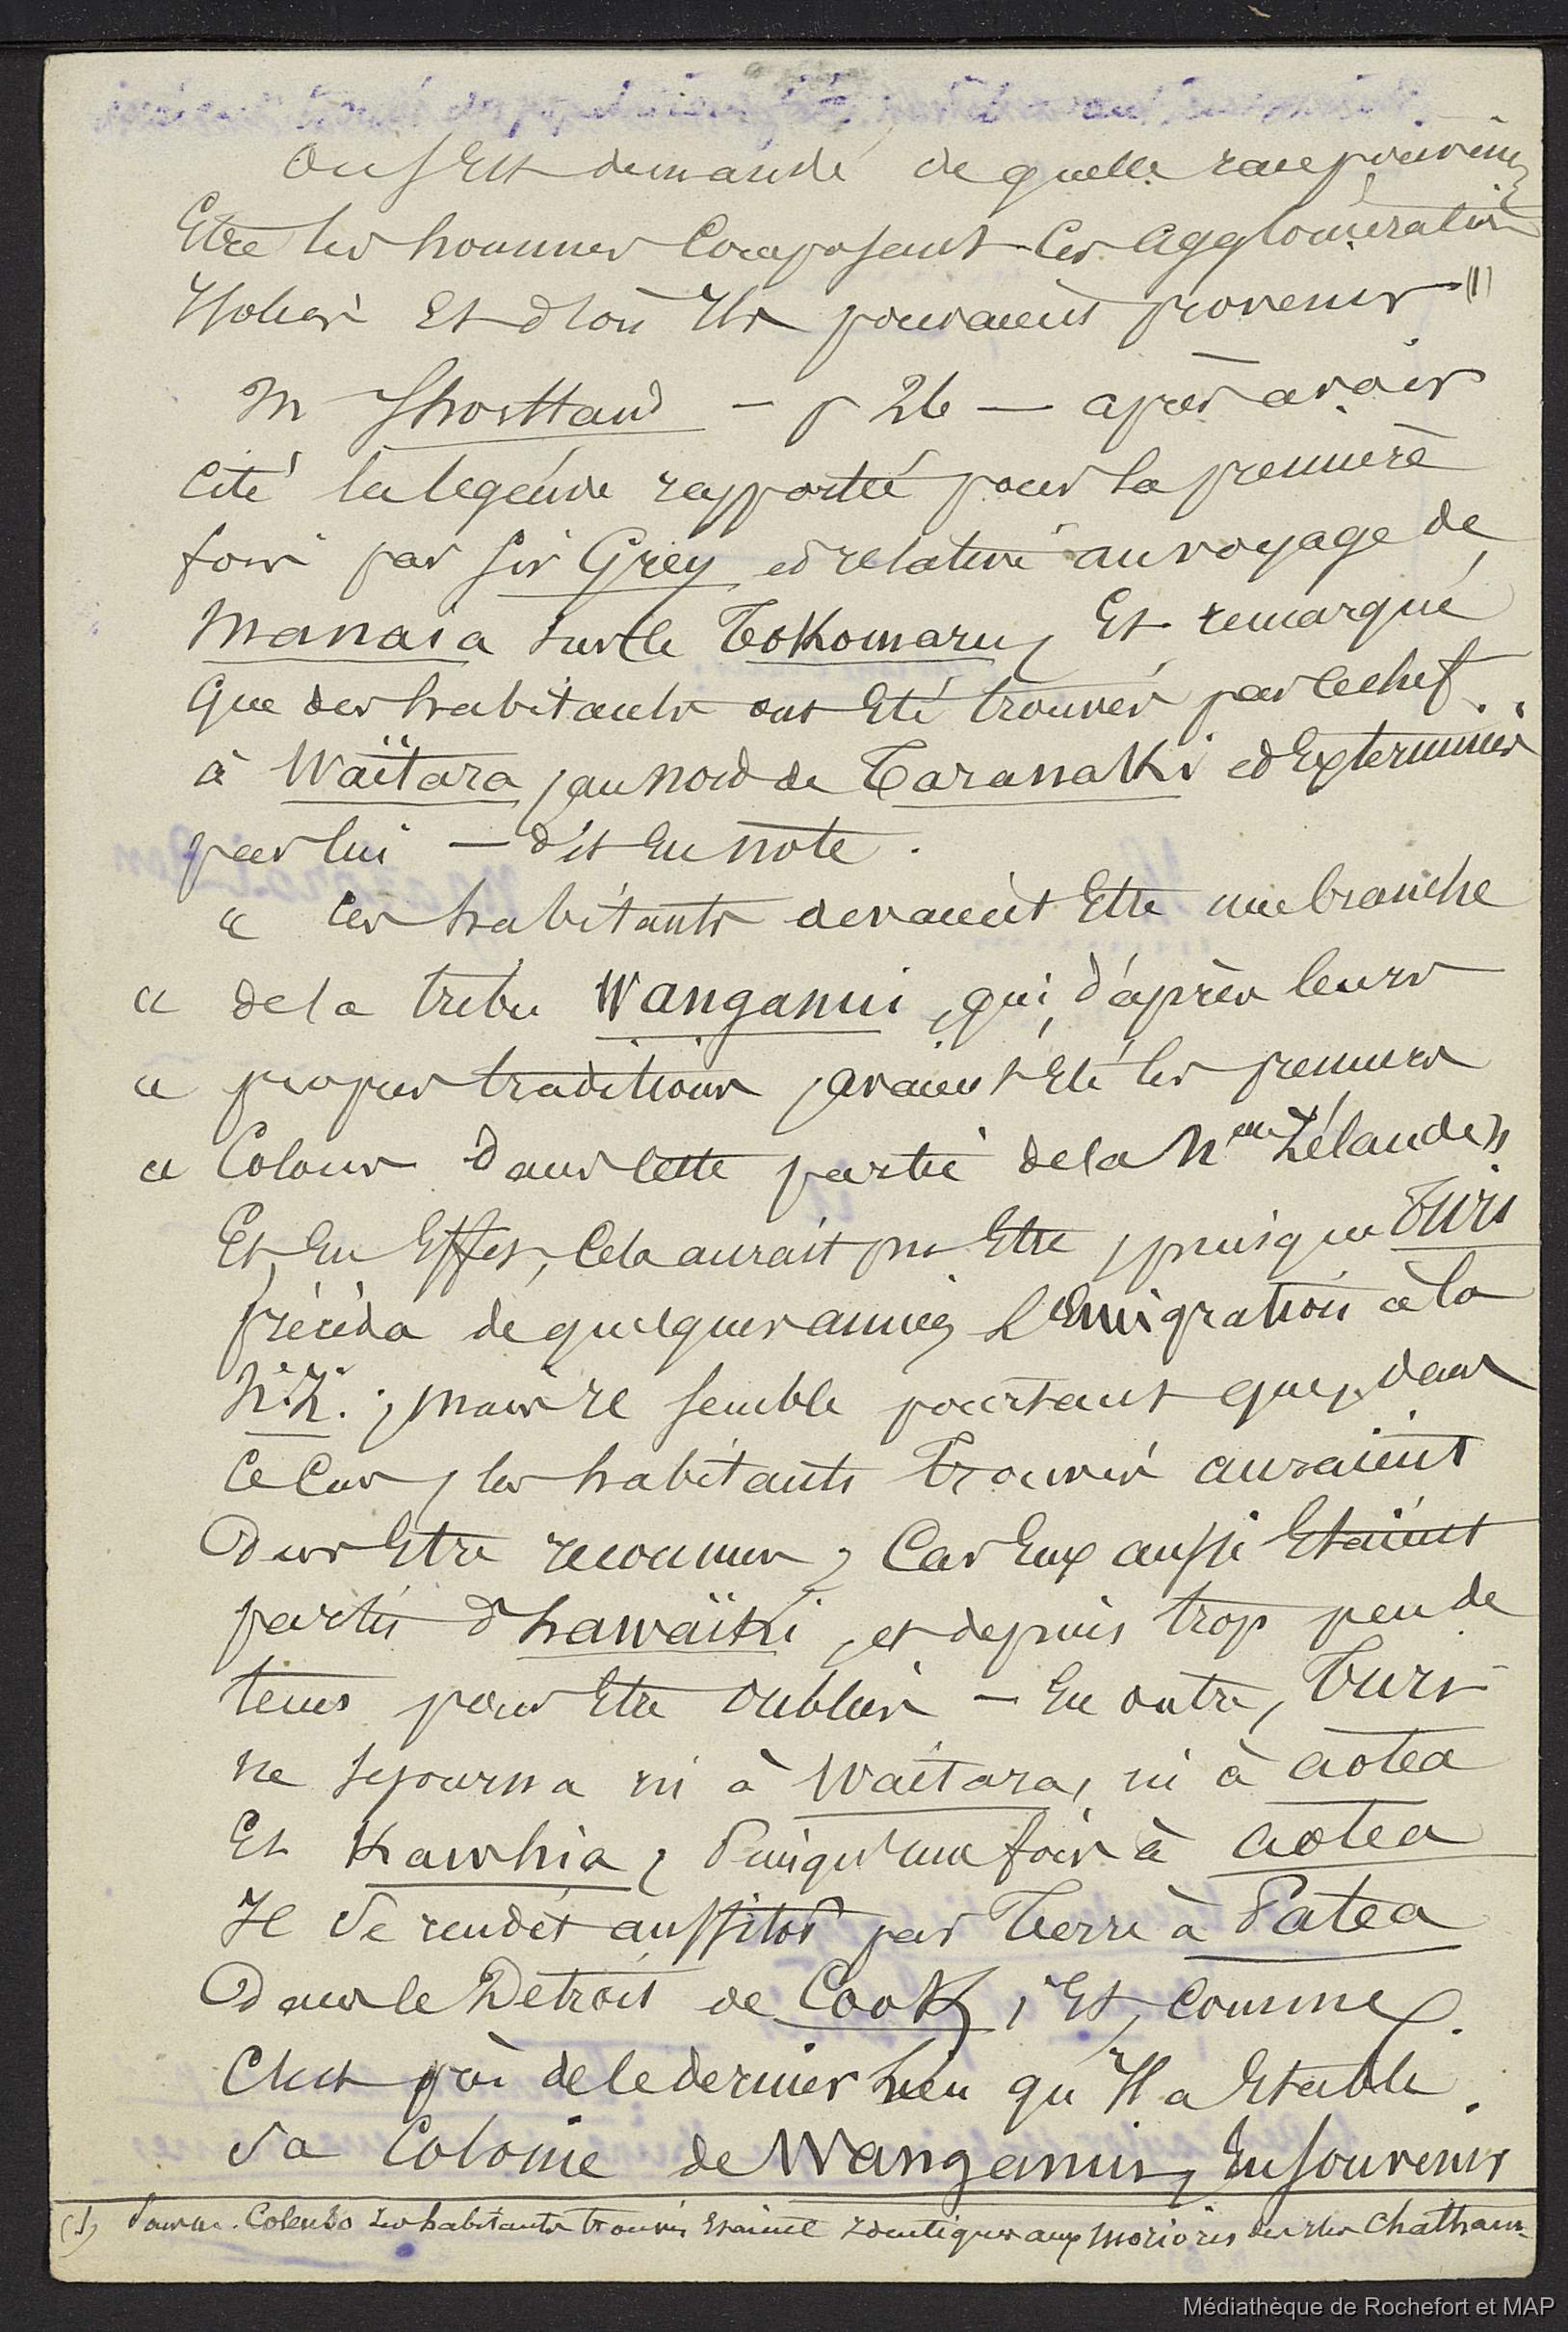 On s'est demandé de quelle race pouvaient
Etre les hommes Composant Ces agglomérations
Isolées Et d'où Ils pouvaient provenir (1)
M Shorttand — p 26 — après avoir
Cité la légende rapportée pour la première
fois par Sir Grey et relative au voyage de
Manaia sur le Tokomaru, Et remarqué
Que des habitants ont Eté trouvés par ce chef
à Waïtara, au nord de Taranaki et Exterminés
par lui — dit En note.
« Ces habitants devaient Etre une branche
« de la tribu Wanganui, qui, d'après leurs
« propres traditions, avaient Eté les premiers
« Colons dans cette partie de la Nelle Zélande »
Et, En Effet, Cela aurait pu Etre, puisque Turi
précéda de quelques années L'Emigration à la
N.Z. ; mais Il semble pourtant que, dans
Ce Cas, les habitants trouvés auraient
dus Etre reconnus, Car Eux aussi Etaient
partis d'hawaïki, et depuis trop peu de
tems pour Etre oubliés — En outre, Turi
ne séjourna ni à Waïtara, ni à aotea
Et Kawhia, Puisqu'une fois à aotea
Il Se rendit aussitôt par Terre à Patea
Dans le Détroit de Cook, Et, Comme
C'est près de ce dernier lieu qu'Il a Etabli
Sa Colonie de Wanganui, En souvenir
(1) Pour M. Colenso Les habitants trouvés Etaient Identiques aux Morioris des Iles Chatham.
Médiathèque de Rochefort et MAP